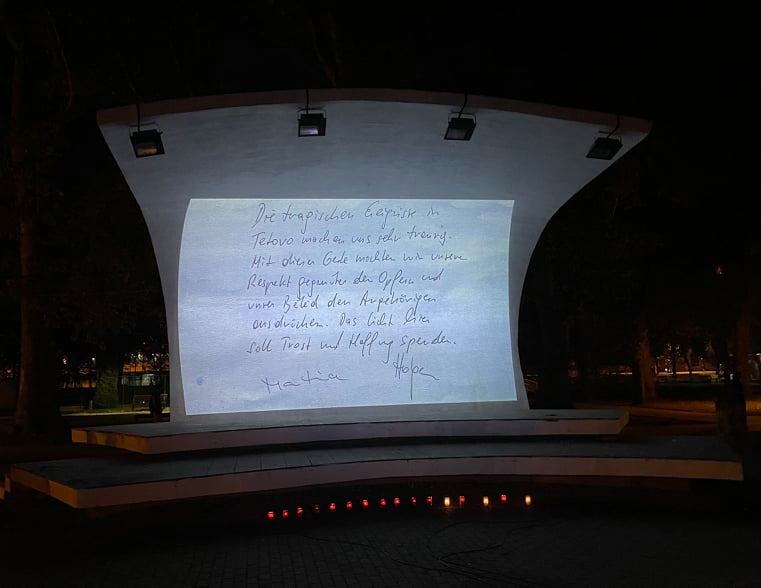 Die tragischen Ereignisse in
Tetovo machen uns sehr traurig.
Mit dieser Geste möchten wir unseren
Respekt gegenüber den Opfern und
unser Beileid den Angehörigen
ausdrücken. Das Licht hier
soll Trost und Hoffnung spenden.